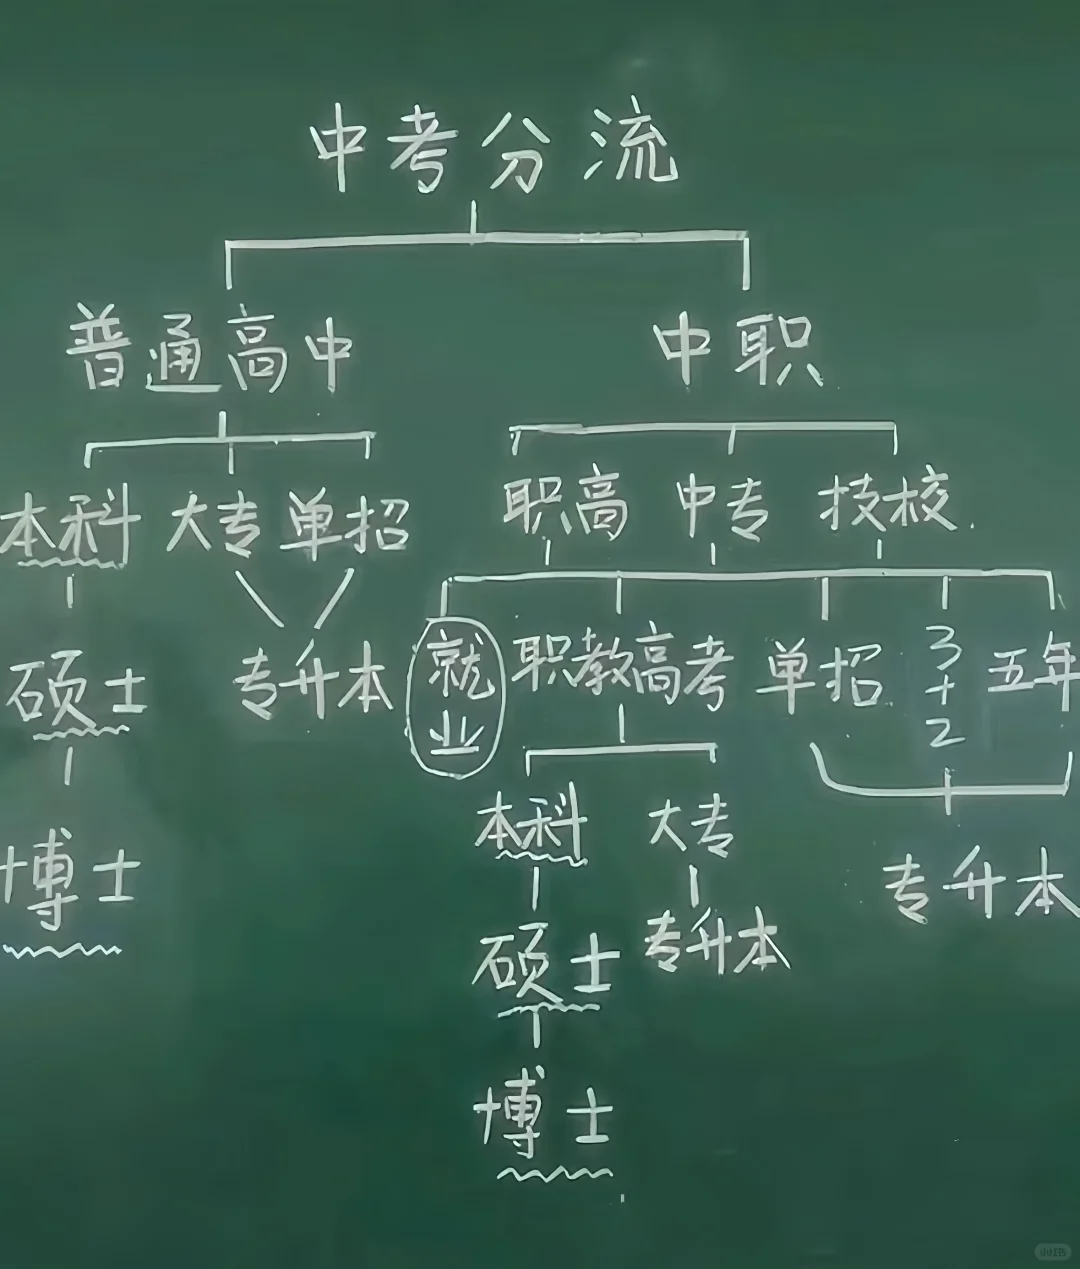 中考分流
普通高中 中职
本科 大专 单招 职高 中专 技校
硕士 专升本 就业 职教高考 单招 3+2 五年
博士 本科 大专 专升本
硕士 专升本
博士
小红书